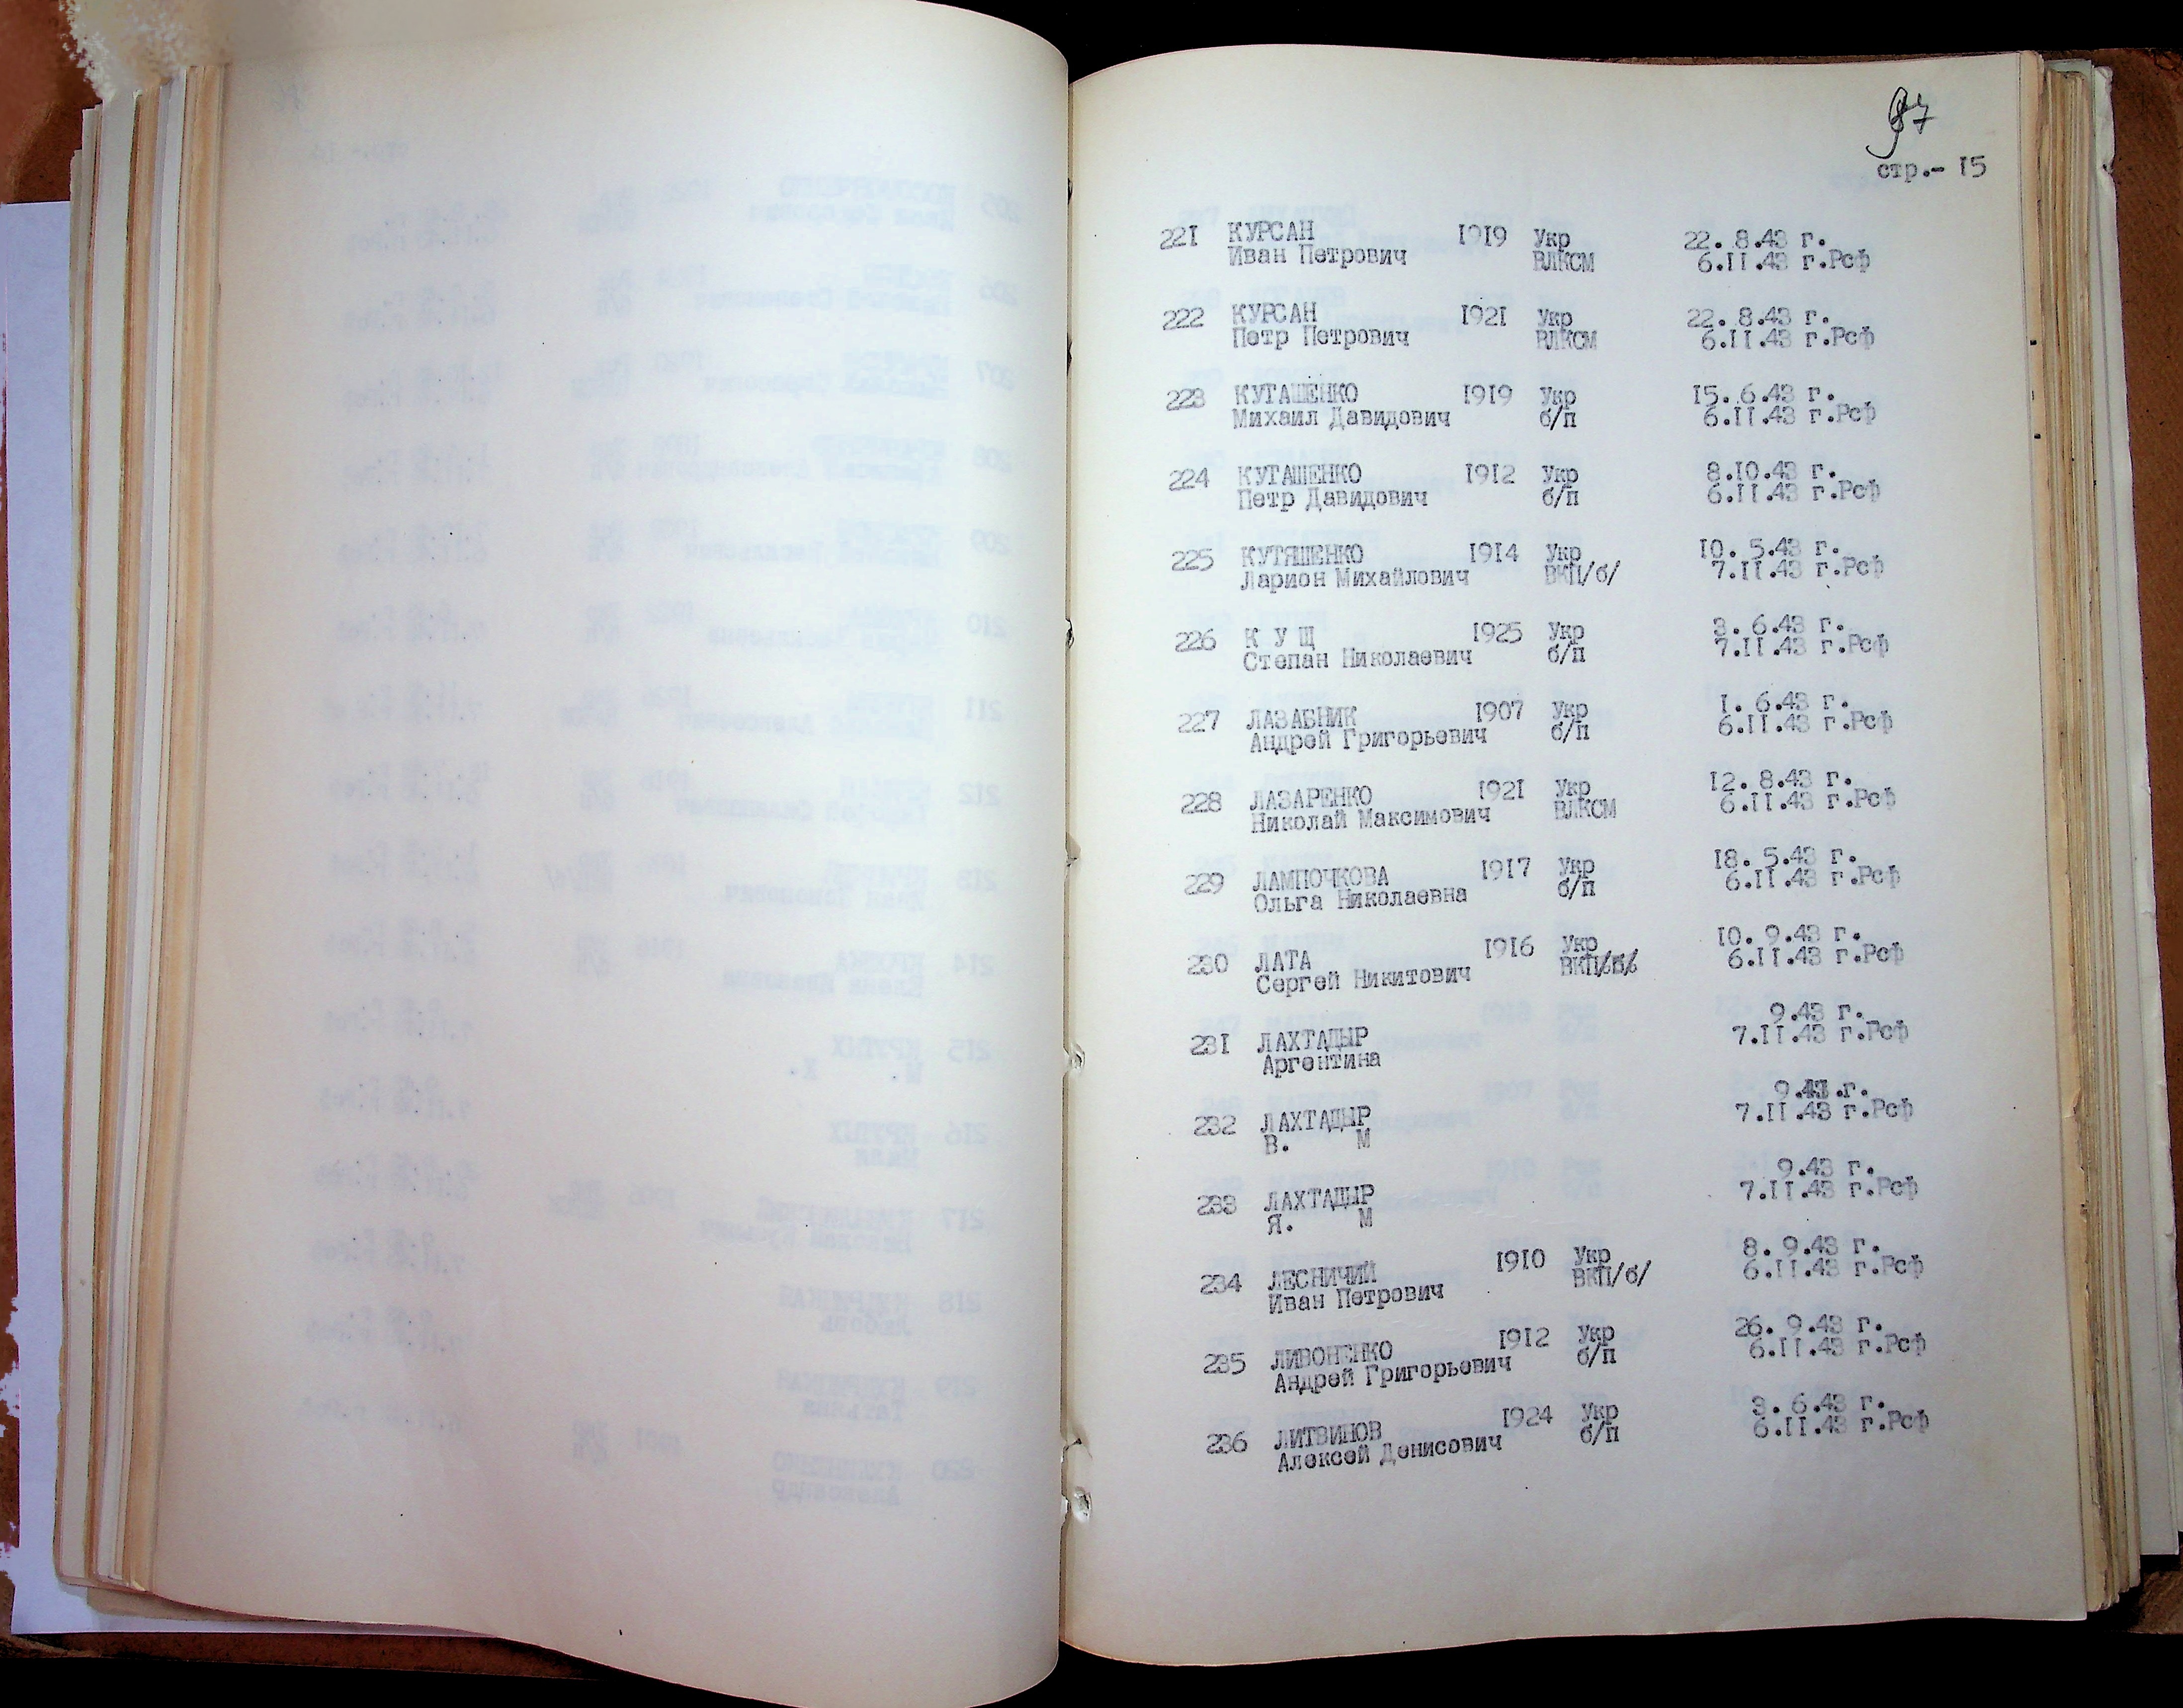 97
стр.- I5
22I КУРСАН I9I9 Укр 22. 8.43 г.
Иван Петрович ВЛКСМ 6.II.43 г.Рсф
222 КУРСАН I92I Укр 22. 8.43 г.
Петр Петрович ВЛКСМ 6.II.43 г.Рсф
223 КУТАШЕНКО I9I9 Укр I5. 6.43 г.
Михаил Давидович б/п 6.II.43 г.Рсф
224 КУТАШЕНКО I9I2 Укр 8.I0.43 г.
Петр Давидович б/п 6.II.43 г.Рсф
225 КУТЯШЕНКО I9I4 Укр I0. 5.43 г.
Ларион Михайлович ВКП/б/ 7.II.43 г.Рсф
226 К У Щ I925 Укр 3. 6.43 г.
Степан Николаевич б/п 7.II.43 г.Рсф
227 ЛАЗАБНИК I907 Укр I. 6.43 г.
Андрей Григорьевич б/п 6.II.43 г.Рсф
228 ЛАЗАРЕНКО I92I Укр I2. 8.43 г.
Николай Максимович ВЛКСМ 6.II.43 г.Рсф
229 ЛАМПОЧКОВА I9I7 Укр I8. 5.43 г.
Ольга Николаевна б/п 6.II.43 г.Рсф
230 ЛАТА I9I6 Укр I0. 9.43 г.
Сергей Никитович ВКП/б/ 6.II.43 г.Рсф
23I ЛАХТАДЫР 9.43 г.
Аргентина 7.II.43 г.Рсф
232 ЛАХТАДЫР 9.43 г.
В. М 7.II.43 г.Рсф
233 ЛАХТАДЫР 9.43 г.
Я. М 7.II.43 г.Рсф
234 ЛЕСНИЧИЙ I9I0 Укр 8. 9.43 г.
Иван Петрович ВКП/б/ 6.II.43 г.Рсф
235 ЛИВОНЕНКО I9I2 Укр 26. 9.43 г.
Андрей Григорьевич б/п 6.II.43 г.Рсф
236 ЛИТВИНОВ I924 Укр 3. 6.43 г.
Алексей Денисович б/п 6.II.43 г.Рсф